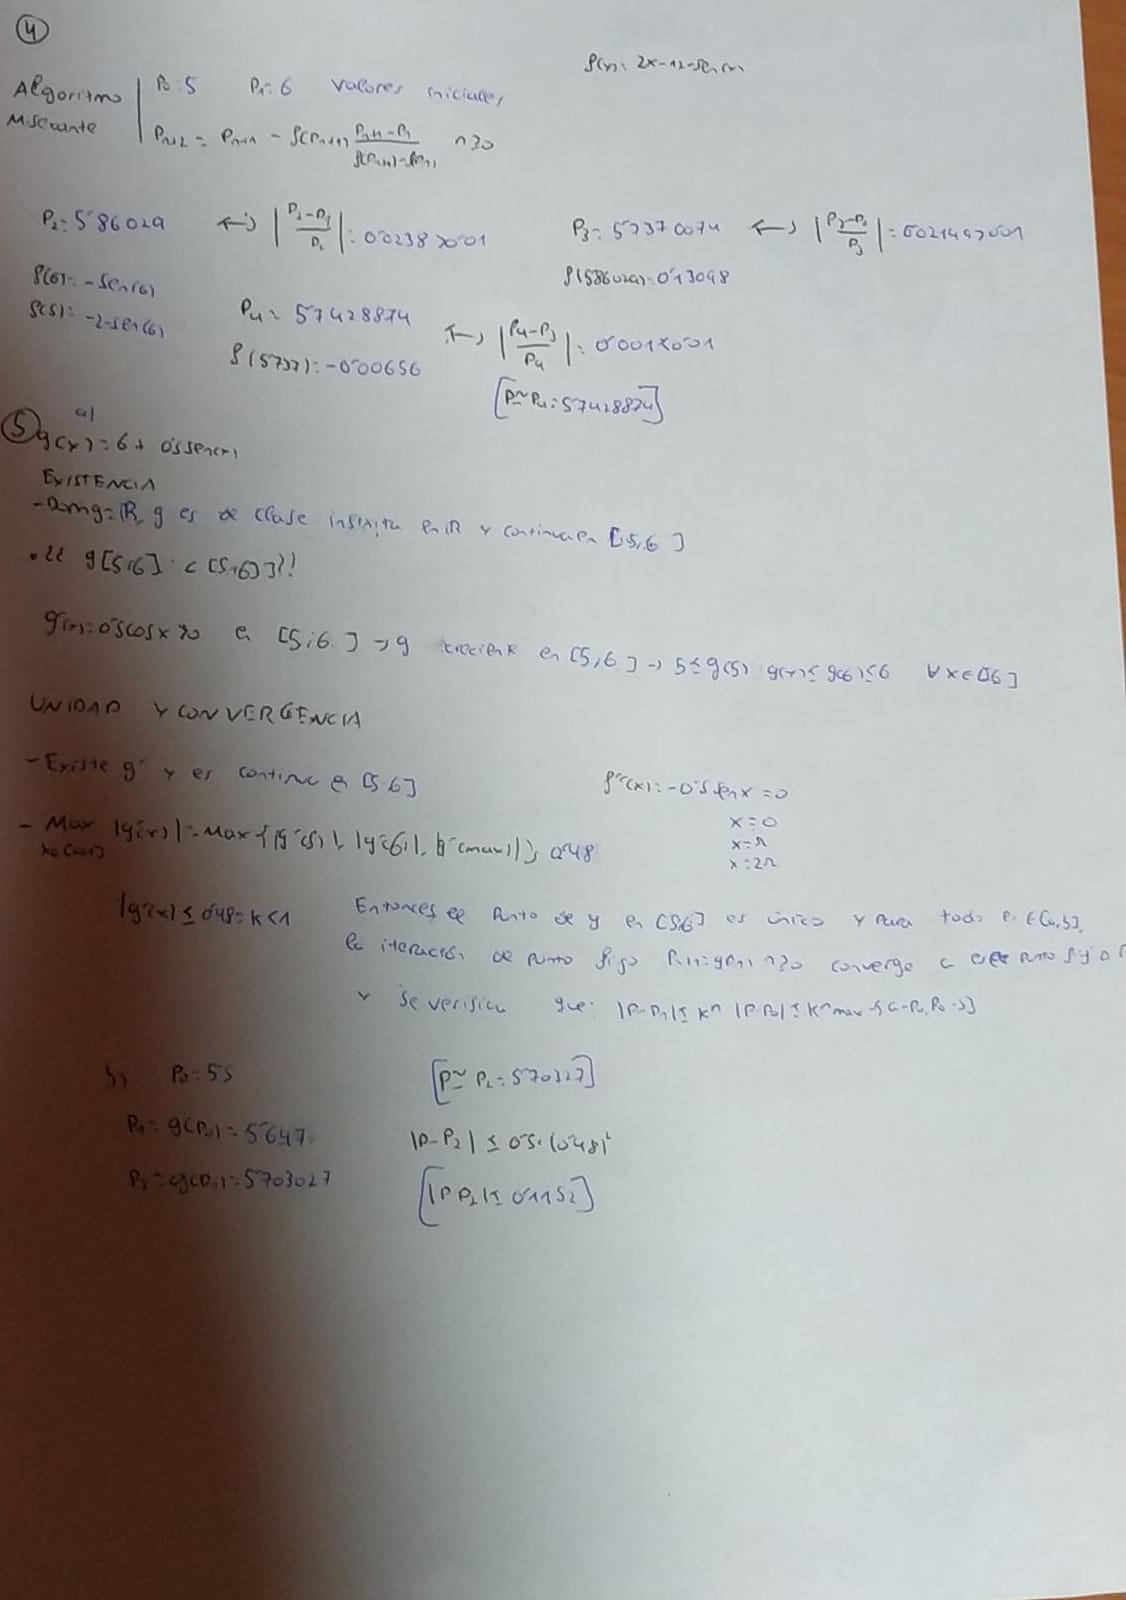 4
f(x): 2x-12-sen(x)
Algoritmo P0:5 P1:6 valores iniciales
M secante Pn+2 = Pn+1 - f(Pn+1) Pn+1-Pn / f(Pn+1)-f(Pn) n≥0
P2: 5'86029 ↔ |P2-P1 / P2|: 0'0238>0'01 P3: 5'7370074 ↔ |P3-P2 / P3|: 0'02149>0'01
f(6): -sen(6) f(5'86029): 0'13098
f(5): -2-sen(5)
P4: 5'7428874 ↔ |P4-P3 / P4|: 0'001<0'01
f(5'737): -0'00656
[P≃P4: 5'7428874]
5 a)
g(x) = 6 + 0'5sen(x)
EXISTENCIA
- Dom g = R, g es de clase infinita en R y continua en [5,6]
• ¿¿ g[5,6] ⊂ [5,6]??
g'(x): 0'5cosx >0 en [5,6] → g creciente en [5,6] → 5≤g(5) g(x)≤g(6)≤6 ∀x∈[5,6]
UNIDAD Y CONVERGENCIA
- Existe g' y es continua en [5,6]
g''(x): -0'5 senx = 0
x=0
x=π
x=2π
- Max |g'(x)| = Max {|g'(5)|, |g'(6)|, |g'(max)|}, 0'48
|g'(x)| ≤ 0'48 = K<1 Entonces el punto de g en [5,6] es único y para todo P0 ∈ [a,b],
la iteración de punto fijo Pn+1=g(Pn) n≥0 converge a ese punto fijo P
y se verifica que: |P-Pn| ≤ K^n |P-P0| ≤ K^n max {a-P0, P0-b}
b) P0=5'5 [P≃P2 = 5'70327]
P1 = g(P0) = 5'647 |P-P2| ≤ 0'5·(0'48)²
P2 = g(P1) = 5'703027 [|P-P2| ≤ 0'1152]